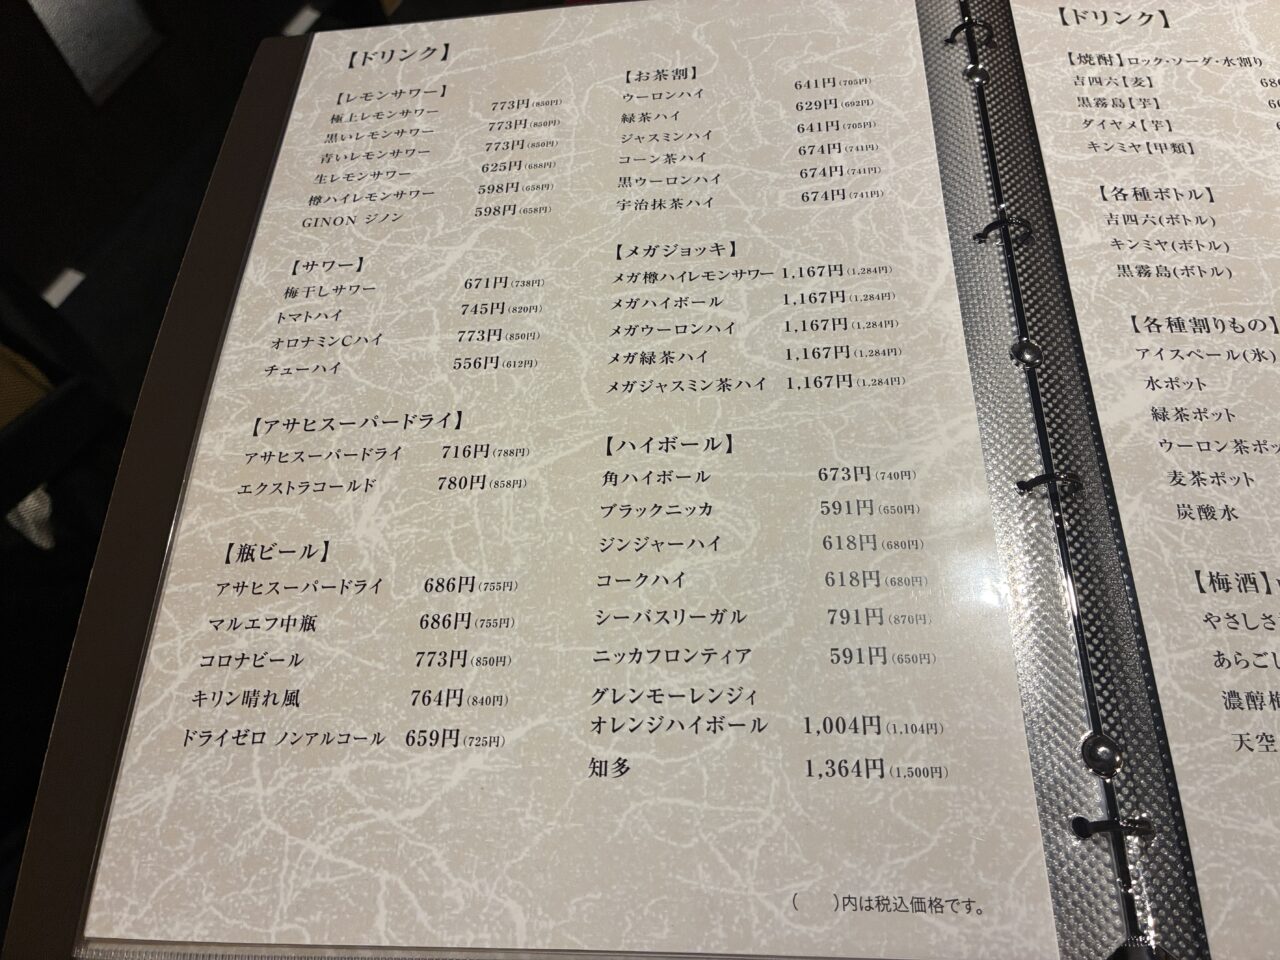 【ドリンク】
【レモンサワー】
極上レモンサワー 773円(850円)
黒いレモンサワー 773円(850円)
青いレモンサワー 773円(850円)
生レモンサワー 625円(688円)
樽ハイレモンサワー 598円(658円)
GINON ジノン 598円(658円)
【サワー】
梅干しサワー 671円(738円)
トマトハイ 745円(820円)
オロナミンCハイ 773円(850円)
チューハイ 556円(612円)
【アサヒスーパードライ】
アサヒスーパードライ 716円(788円)
エクストラコールド 780円(858円)
【瓶ビール】
アサヒスーパードライ 686円(755円)
マルエフ中瓶 686円(755円)
コロナビール 773円(850円)
キリン晴れ風 764円(840円)
ドライゼロ ノンアルコール 659円(725円)
【お茶割】
ウーロンハイ 641円(705円)
緑茶ハイ 629円(692円)
ジャスミンハイ 641円(705円)
コーン茶ハイ 674円(741円)
黒ウーロンハイ 674円(741円)
宇治抹茶ハイ 674円(741円)
【メガジョッキ】
メガ樽ハイレモンサワー 1,167円(1,284円)
メガハイボール 1,167円(1,284円)
メガウーロンハイ 1,167円(1,284円)
メガ緑茶ハイ 1,167円(1,284円)
メガジャスミン茶ハイ 1,167円(1,284円)
【ハイボール】
角ハイボール 673円(740円)
ブラックニッカ 591円(650円)
ジンジャーハイ 618円(680円)
コークハイ 618円(680円)
シーバスリーガル 791円(870円)
ニッカフロンティア 591円(650円)
グレンモーレンジィ
オレンジハイボール 1,004円(1,104円)
知多 1,364円(1,500円)
( )内は税込価格です。
【ドリンク】
【焼酎】ロック・ソーダ・水割り
吉四六【麦】
黒霧島【芋】
ダイヤメ【芋】
キンミヤ【甲類】
【各種ボトル】
吉四六(ボトル)
キンミヤ(ボトル)
黒霧島(ボトル)
【各種割りもの】
アイスペール(氷)
水ポット
緑茶ポット
ウーロン茶ポッ
麦茶ポット
炭酸水
【梅酒】
やさしさ
あらごし
濃醇梅
天空